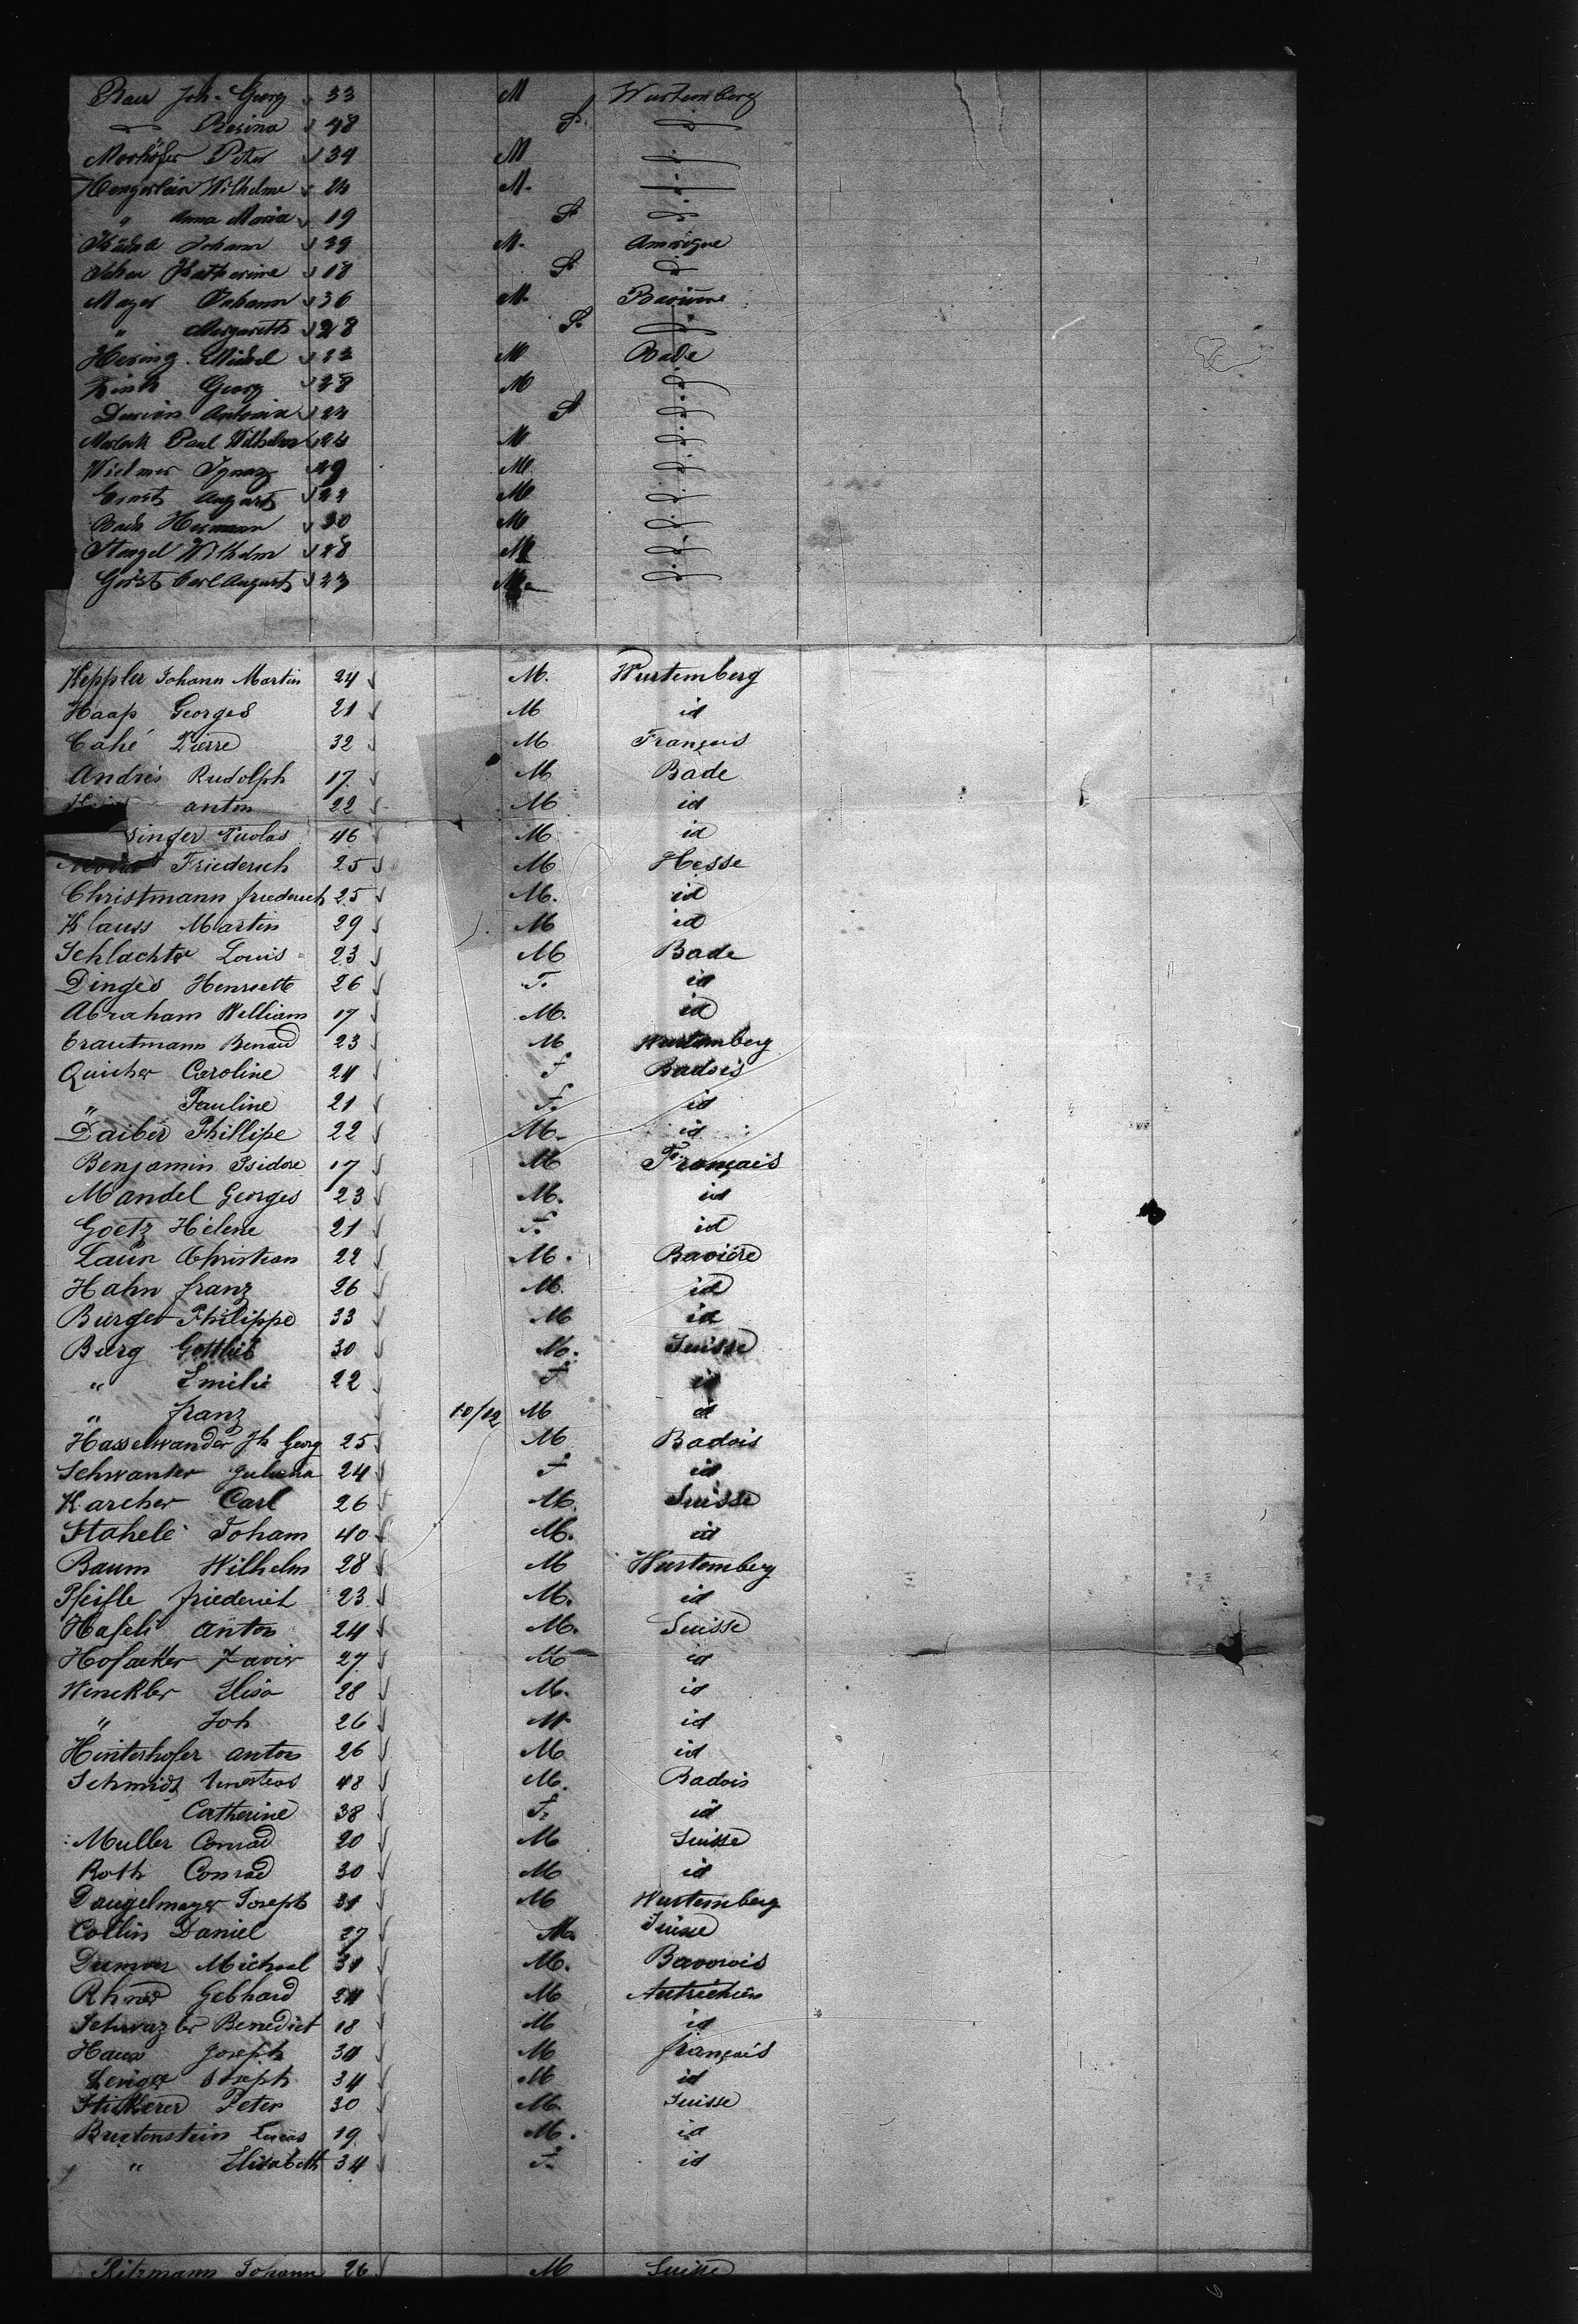 Rau Joh. Georg 33 M Wurtemberg
Rosina 48 F. id
Morhöfer Peter 34 M id
Hengerlein Wilhelm 24 M. id
" Anna Maria 19 F id
Johann 39 M. Amerique
Katherine 18 F id
Mayer Johann 36 M. Baviere
" Margareth 28 F. id
Hering Michel 23 M Bade
Zink Georg 28 M id
Antonia 24 F id
Morlock Paul Wilhelm 24 M id
Widmer Ignaz 49 M id
Ernst August 22 M id
Bach Hermann 30 M id
Stengel Wilhelm 28 M id
Görst Carl August 23 M. id
Keppler Johann Martin 24 M. Wurtemberg
Haap Georges 21 M id
Cahé Pierre 32 M Français
Andrés Rudolph 17 M Bade
anton 22 M id
singer Nicolas 46 M id
Friederich 25 M Hesse
Christmann friederich 25 M. id
Klauss Martin 29 M id
Schlachter Louis 23 M Bade
Dinges Henriette 26 F. id
Abraham William 17 M. id
Trautmann 23 M Wurtemberg
Quicher Caroline 24 f Badois
" Pauline 21 F. id
Daiber Phillipe 22 M. id
Benjamin Isidore 17 M Français
Mandel Georges 23 M. id
Goetz Hélene 21 F. id
Laün Christian 22 M. Bavière
Hahn franz 26 M. id
Burger Philippe 33 M id
Burg Gottlieb 30 M. Suisse
" Emilie 22 F id
" franz 10/12 M id
Hasselwander Jh Georg 25 M Badois
Schwanter Juliana 24 F id
Karcher Carl 26 M. Suisse
Stahele Joham 40 M. id
Baum Wilhelm 28 M Wurtemberg
Pfeifle friederich 23 M. id
Hafeli Anton 24 M. Suisse
Hofacker Xavier 27 M id
Winckler Elisa 28 M. id
" Joh 26 M id
Hinterhofer anton 26 M id
Schmidt 48 M. Badois
Catherine 38 F. id
Muller Conrad 20 M Suisse
Roth Conrad 30 M id
Daugelmayer Joseph 31 M Wurtemberg
Collin Daniel 27 M. Suisse
Michael 31 M. Bavarois
Rhner Gebhard 24 M Autrichien
Schwazler Benedict 18 M id
Haus Joseph 34 M français
Joseph 34 M id
Stickerer Peter 30 M. Suisse
Brietenstein Lucas 19 M. id
" Elisabeth 34 F. id
Ritzmann Johann 26 M Suisse